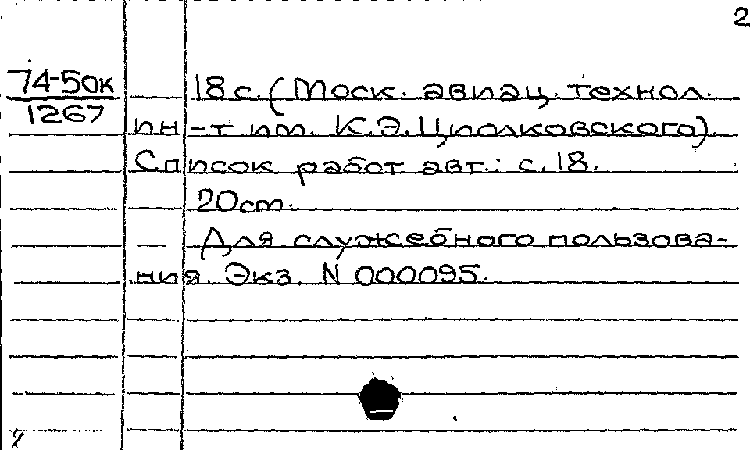 2
74-50к
1267
18 с. (Моск. авиац. технол.
ин-т им. К.Э. Циолковского).
Список работ авт.: с. 18.
20 cm.
Для служебного пользова-
ния. Экз. N 000095.